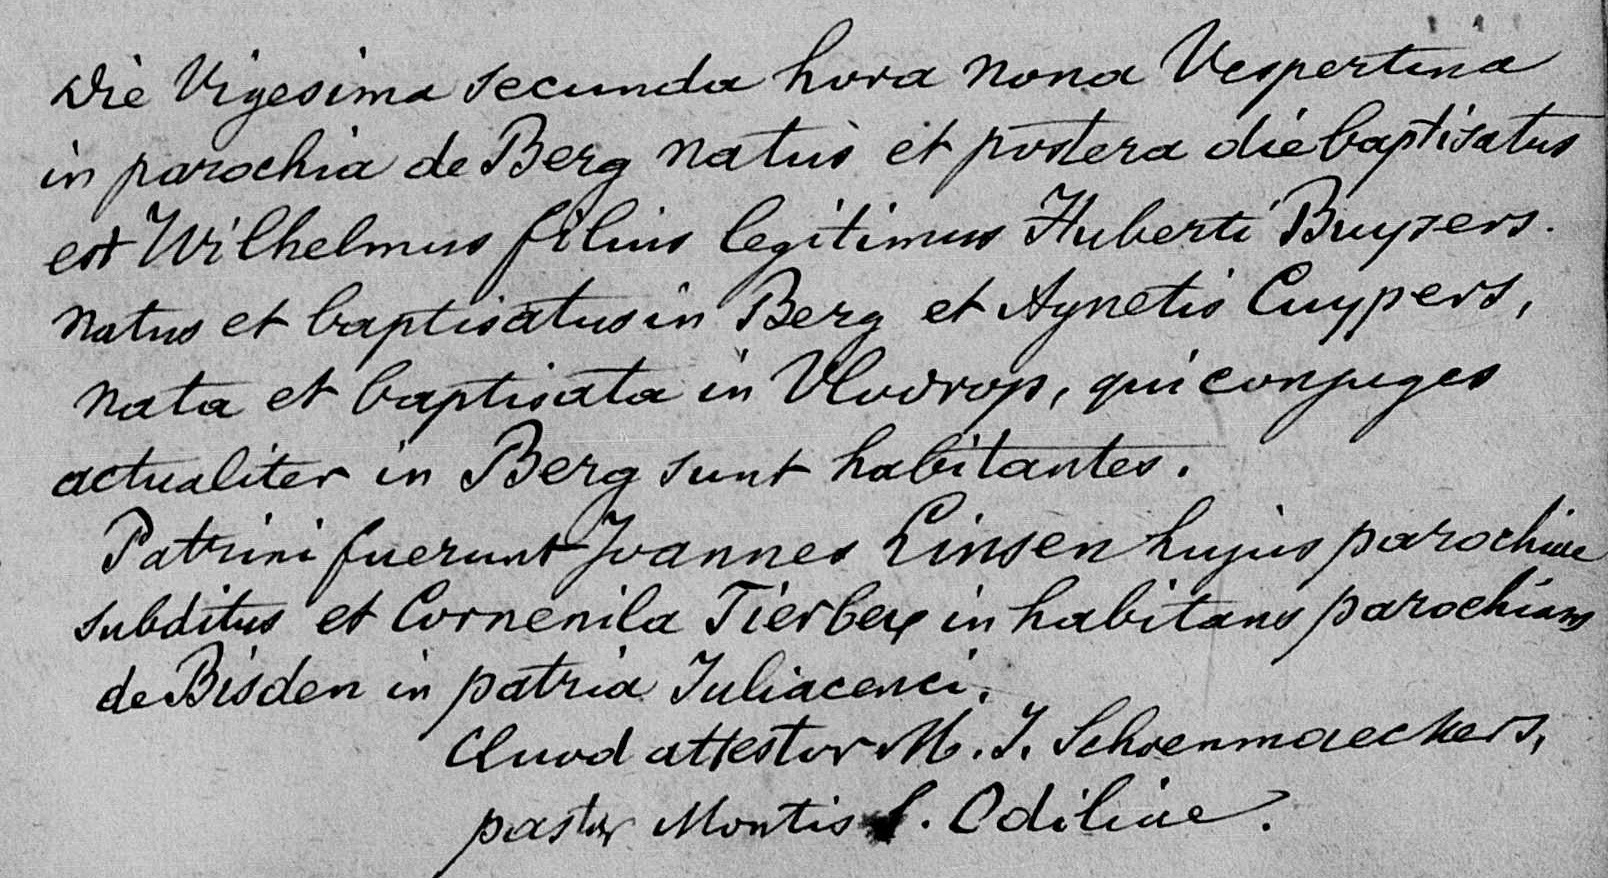 Die Vigesima secunda hora nona Vespertina
in parochia de Berg natus et postera die baptisatus
est Wilhelmus filius legitimus Huberti Buysers.
natus et baptisatus in Berg et Agnetis Cuypers,
nata et baptisata in Vlodrop, qui conjuges
actualiter in Berg sunt habitantes.
Patrini fuerunt Joannes Linsen hujus parochiae
subditus et Cornenila in habitans parochiam
de Bisden in patria Juliacenci.
Quod attestor M. J. Schoenmaeckers,
pastor Montis S. Odiliae.